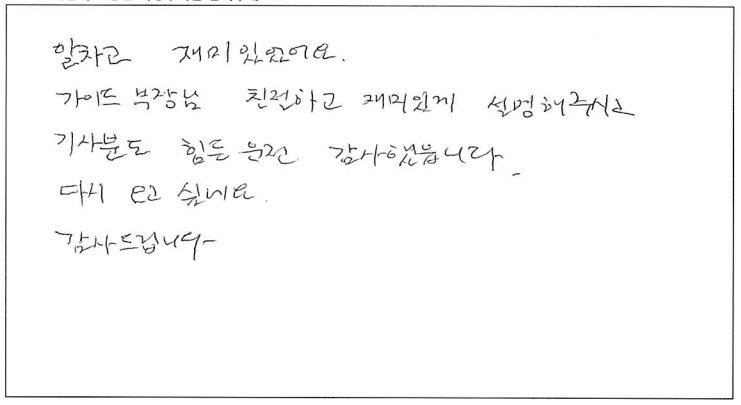 알차고 재미있었어요.
가이드 부장님 친절하고 재미있게 설명해주시고
기사분도 힘든 운전 감사했읍니다.
다시 오고 싶네요.
감사드립니다